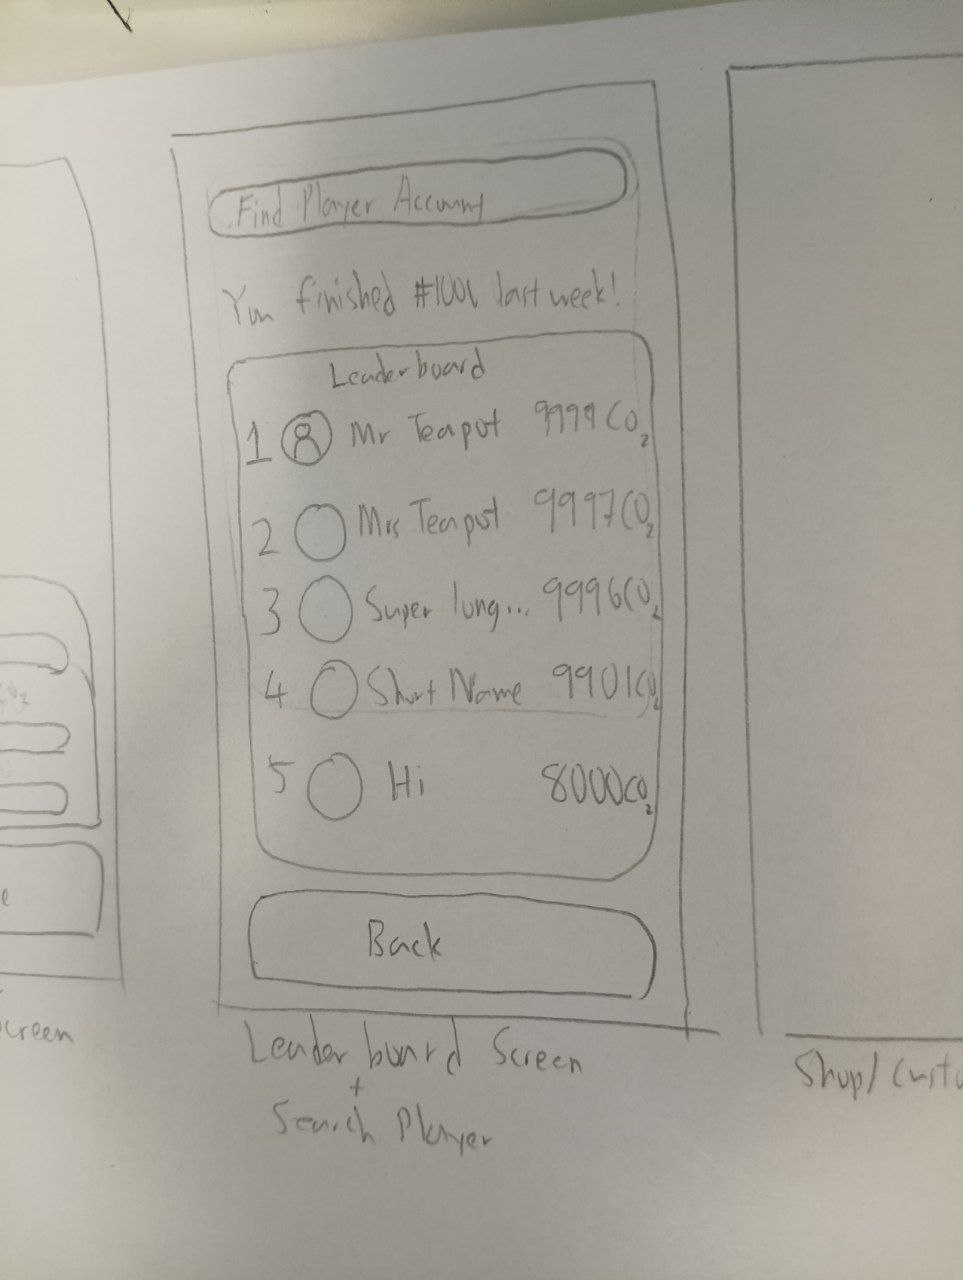 Find Player Account
You finished #1001 last week!
Leaderboard
1 Mr Teapot 9999 CO₂
2 Mrs Teapot 9997 CO₂
3 Super long... 9996 CO₂
4 Short Name 9901 CO₂
5 Hi 8000 CO₂
Back
Leaderboard Screen
+
Search Player
Screen
Shop/